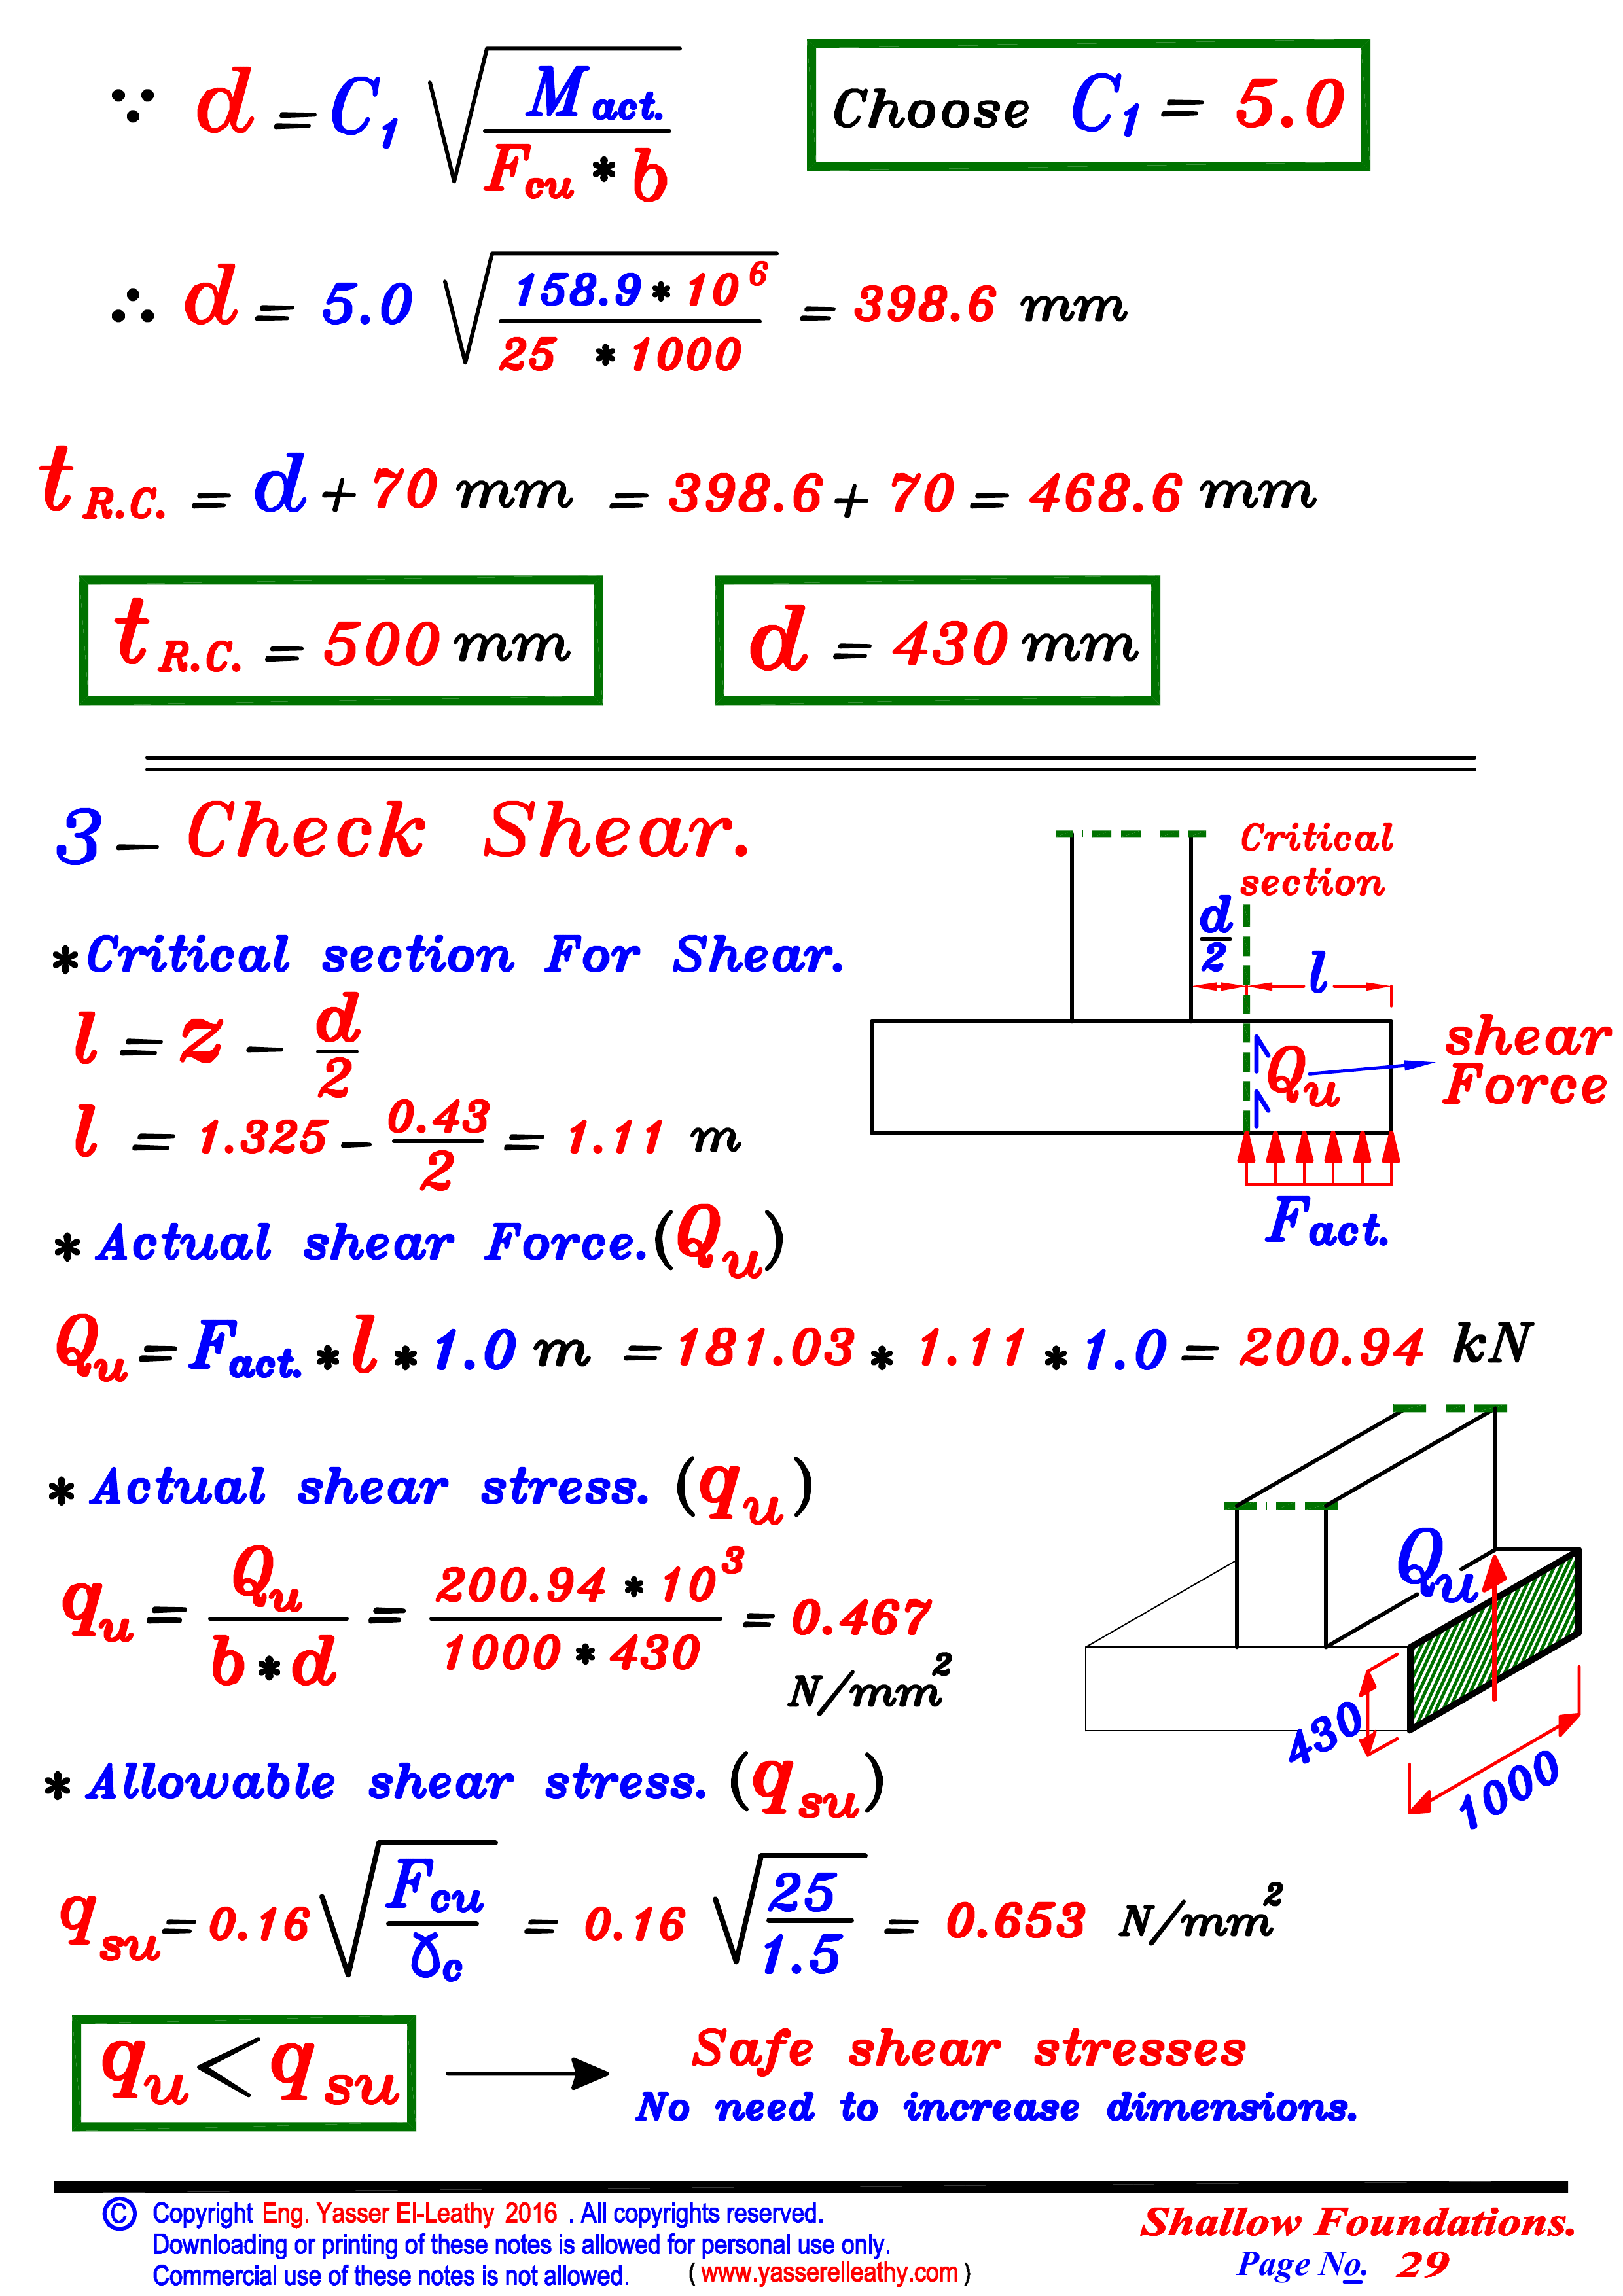 ∵ d = C₁ √(M act. / (Fcu * b))
Choose C₁ = 5.0
∴ d = 5.0 √(158.9 * 10⁶ / (25 * 1000)) = 398.6 mm
t R.C. = d + 70 mm = 398.6 + 70 = 468.6 mm
t R.C. = 500 mm
d = 430 mm
3 – Check Shear.
* Critical section For Shear.
l = z – d/2
l = 1.325 – 0.43/2 = 1.11 m
Critical
section
d/2
l
Qu
shear
Force
Fact.
* Actual shear Force. (Qu)
Qu = Fact. * l * 1.0 m = 181.03 * 1.11 * 1.0 = 200.94 kN
* Actual shear stress. (qu)
qu = Qu / (b * d) = 200.94 * 10³ / (1000 * 430) = 0.467
N/mm²
Qu
430
1000
* Allowable shear stress. (qsu)
qsu = 0.16 √(Fcu / γc) = 0.16 √(25 / 1.5) = 0.653 N/mm²
qu < qsu
Safe shear stresses
No need to increase dimensions.
© Copyright Eng. Yasser El-Leathy 2016 . All copyrights reserved.
Downloading or printing of these notes is allowed for personal use only.
Commercial use of these notes is not allowed. ( www.yasserelleathy.com )
Shallow Foundations.
Page No. 29